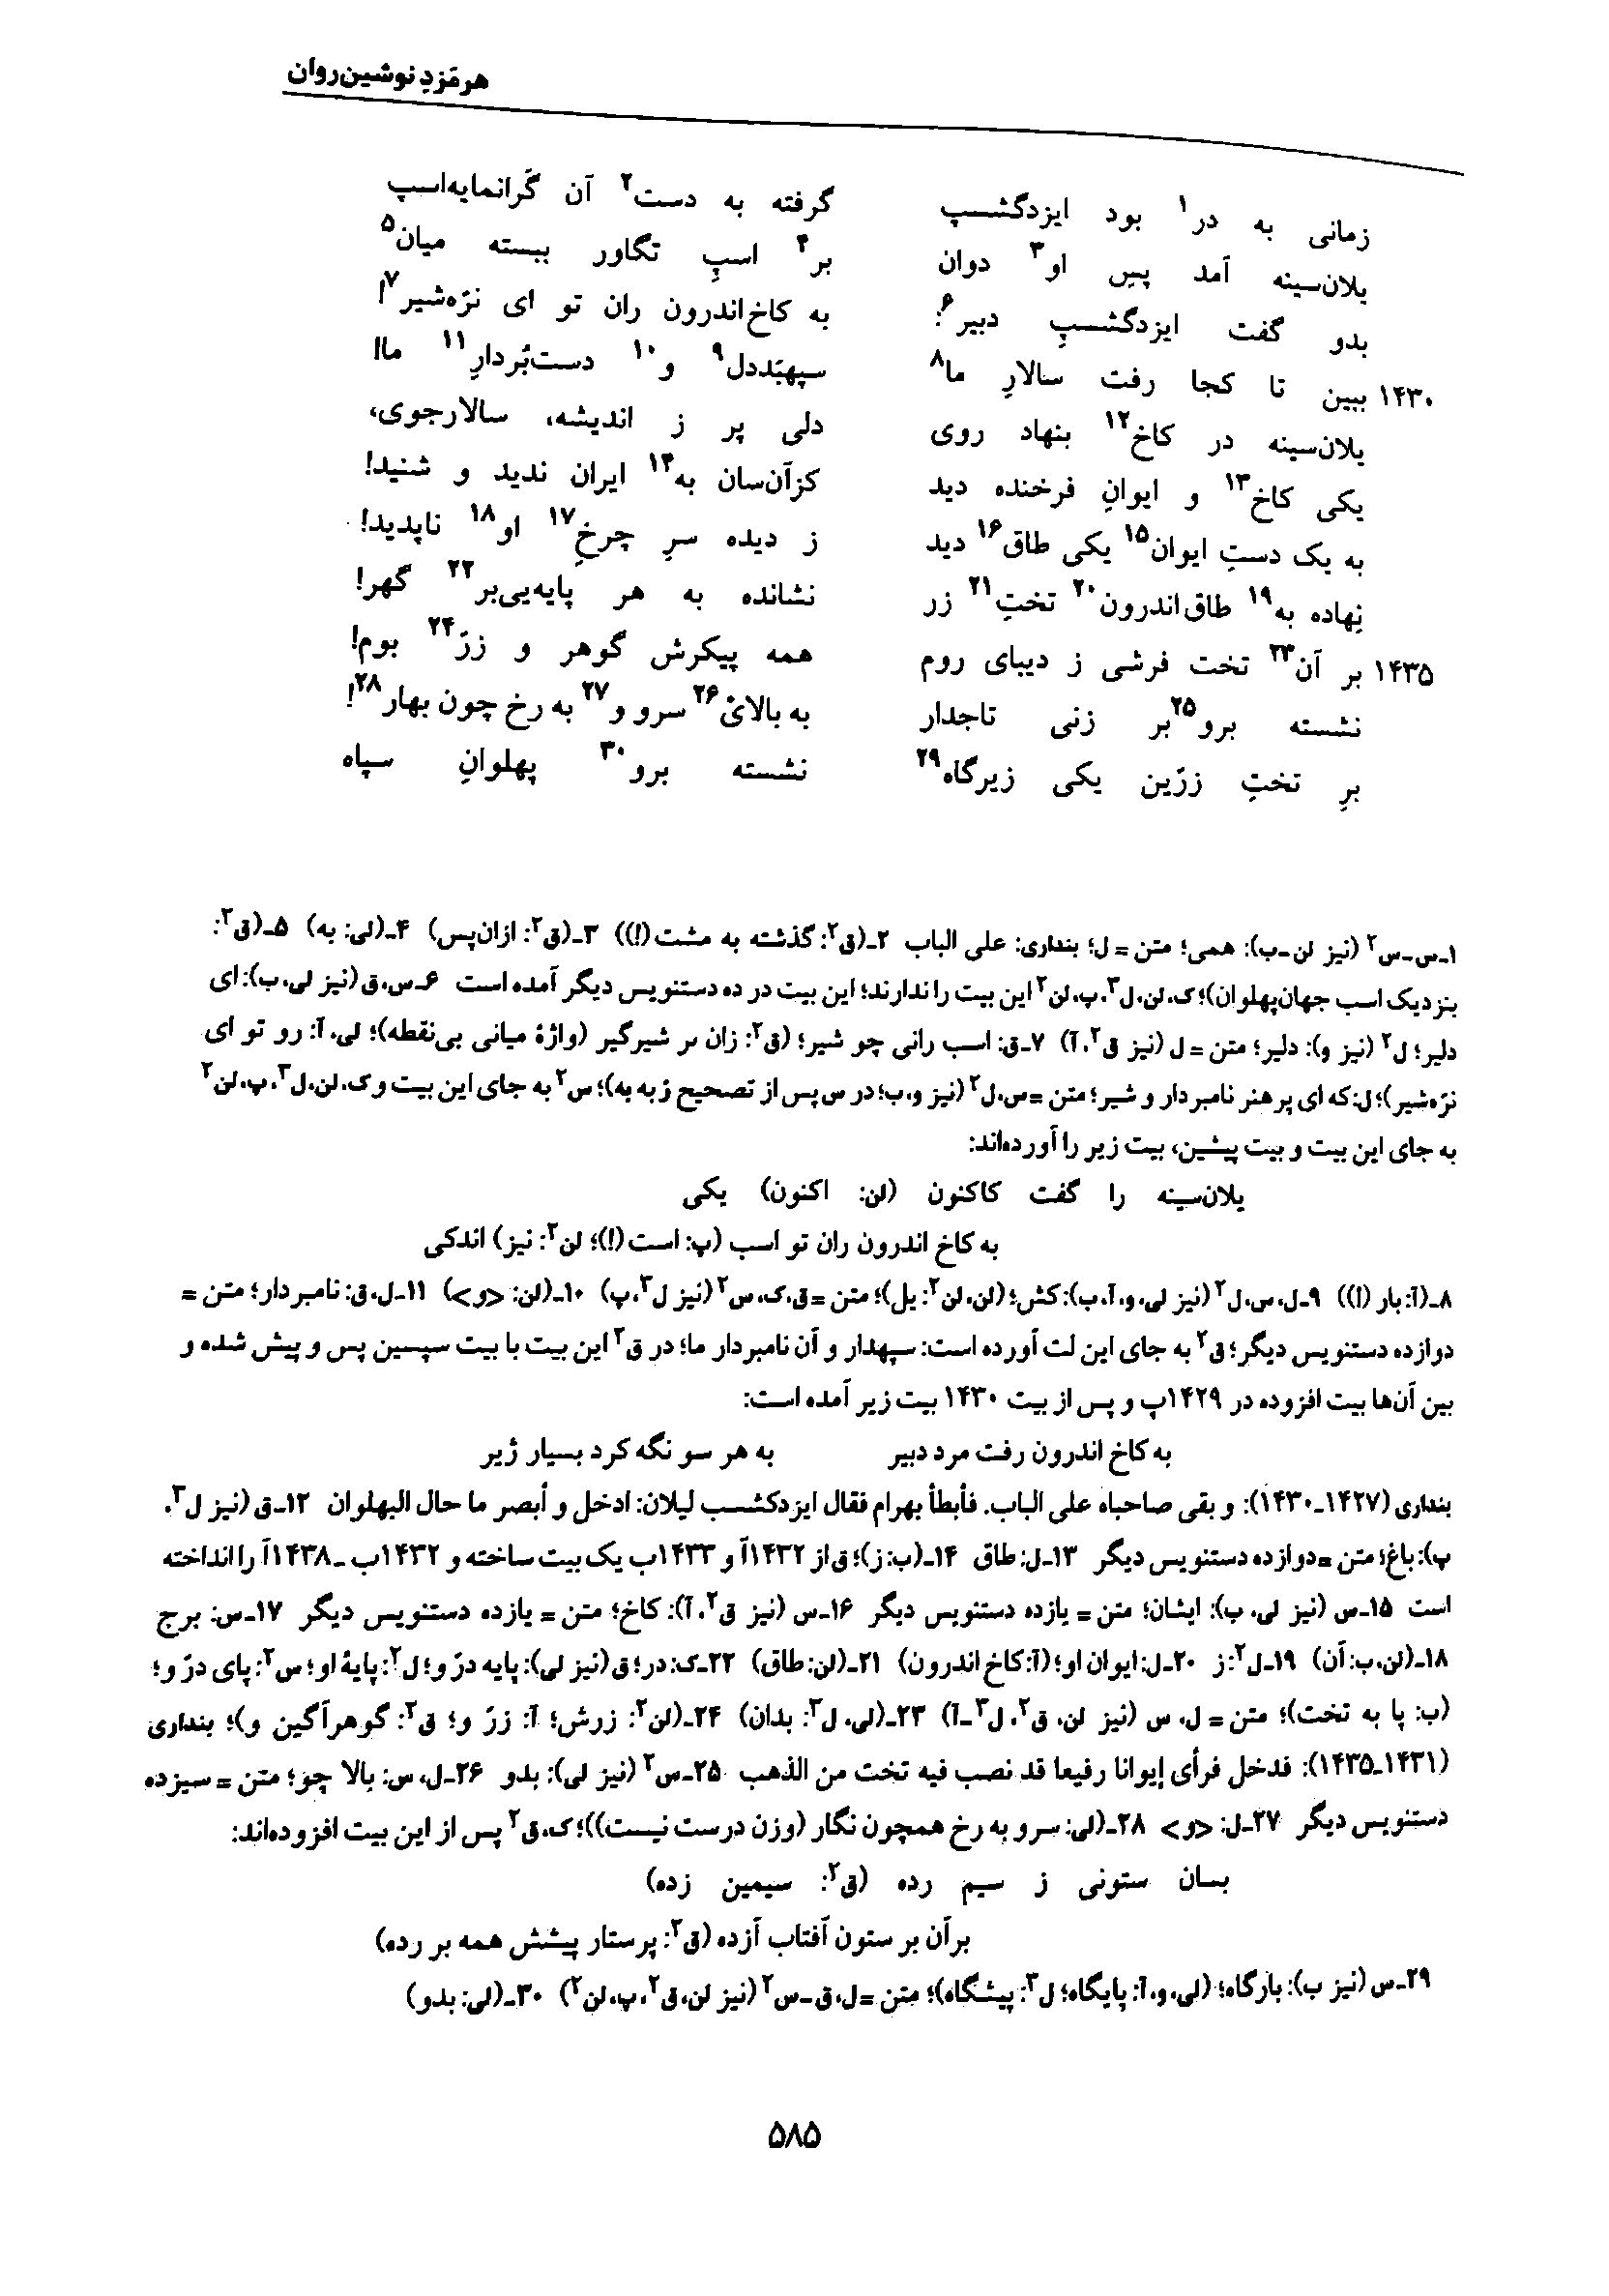 هرمَزدِ نوشین‌روان
زمانی به در۱ بود ایزدگشسپ گرفته به دست۲ آن گَرانمایه‌اسپ
یلان‌سینه آمد پسِ او۳ دوان بر۴ اسپِ تگاور ببسته میان۵
بدو گفت ایزدگشسپِ دبیر۶: به کاخ‌اندرون ران تو ای نرّه‌شیر۷!
۱۴۳۰ ببین تا کجا رفت سالارِ ما۸ سپهبَددل۹ و۱۰ دست‌بُردارِ۱۱ ما!
یلان‌سینه در کاخ۱۲ بنهاد روی دلی پر ز اندیشه، سالارجوی،
یکی کاخ۱۳ و ایوانِ فرخنده دید کزآن‌سان به۱۴ ایران ندید و شنید!
به یک دستِ ایوان۱۵ یکی طاق۱۶ دید ز دیده سرِ چرخِ۱۷ او۱۸ ناپدید!
نِهاده به۱۹ طاق‌اندرون۲۰ تختِ۲۱ زر نشانده به هر پایه‌یی‌بر۲۲ گهر!
۱۴۳۵ بر آن۲۳ تخت فرشی ز دیبای روم همه پیکرش گوهر و زرّ۲۴ بوم!
نشسته برو۲۵بر زنی تاجدار به بالائ۲۶ سرو و۲۷ به رخ چون بهار۲۸!
برِ تختِ زرّین یکی زیرگاه۲۹ نشسته برو۳۰ پهلوانِ سپاه
۱ـ س-س۲ (نیز لن-ب): همی؛ متن = ل؛ بنداری: علی الباب ۲ـ (ق۲: گذشته به مشت(!)) ۳ـ (ق۲: ازان‌پس) ۴ـ (لی: به) ۵ـ (ق۲:
بنزدیک اسب جهان‌پهلوان)؛ ک، لن، ل۳، پ، لن۲ این بیت را ندارند؛ این بیت در ده دستنویس دیگر آمده است ۶ـ س، ق (نیز لی، ب): ای
دلیر؛ ل۲ (نیز و): دلیر؛ متن = ل (نیز ق۲، آ) ۷ـ ق: اسب رانی چو شیر؛ (ق۲: زان بر شیرگیر (واژهٔ میانی بی‌نقطه)؛ لی، آ: رو تو ای
نرّه‌شیر)؛ ل: که ای پر هنر نامبردار و شیر؛ متن = س، ل۲ (نیز و، ب؛ در س پس از تصحیح ز به به)؛ س۲ به جای این بیت و ک، لن، ل۳، پ، لن۲
به جای این بیت و بیت پیشین، بیت زیر را آورده‌اند:
یلان‌سینه را گفت کاکنون (لن: اکنون) یکی
به کاخ اندرون ران تو اسب (پ: است(!)؛ لن۲: نیز) اندکی
۸ـ (آ: بار (!)) ۹ـ ل، س، ل۲ (نیز لی، و، آ، ب): کش؛ (لن، لن۲: یل)؛ متن = ق، ک، س۲ (نیز ل۳، پ) ۱۰ـ (لن: <و>) ۱۱ـ ل، ق: نامبردار؛ متن =
دوازده دستنویس دیگر؛ ق۲ به جای این لت آورده است: سپهدار و آن نامبردار ما؛ در ق۲ این بیت با بیت سپسین پس و پیش شده و
بین آن‌ها بیت افزوده در ۱۴۲۹پ و پس از بیت ۱۴۳۰ بیت زیر آمده است:
به کاخ اندرون رفت مرد دبیر به هر سو نگه کرد بسیار ژیر
بنداری (۱۴۲۷ـ۱۴۳۰): و بقی صاحباه علی الباب. فأبطأ بهرام فقال ایزدکشسب لیلان: ادخل و أبصر ما حال البهلوان ۱۲ـ ق (نیز ل۳،
پ): باغ؛ متن = دوازده دستنویس دیگر ۱۳ـ ل: طاق ۱۴ـ (ب: ز)؛ ق از ۱۴۳۲آ و ۱۴۳۳ب یک بیت ساخته و ۱۴۳۲ب ـ۱۴۳۸آ را انداخته
است ۱۵ـ س (نیز لی، ب): ایشان؛ متن = یازده دستنویس دیگر ۱۶ـ س (نیز ق۲، آ): کاخ؛ متن = یازده دستنویس دیگر ۱۷ـ س: برج
۱۸ـ (لن، ب: آن) ۱۹ـ ل۲: ز ۲۰ـ ل: ایوان او؛ (آ: کاخ اندرون) ۲۱ـ (لن: طاق) ۲۲ـ ک: در؛ ق (نیز لی): پایه درّ و؛ ل۲: پایهٔ او؛ س۲: پای درّ و؛
(ب: پا به تخت)؛ متن = ل، س (نیز لن، ق۲، ل۳ـ آ) ۲۳ـ (لی، ل۳: بدان) ۲۴ـ (لن۲: زرش؛ آ: زرّ و؛ ق۲: گوهرآگین و)؛ بنداری
(۱۴۳۱ـ۱۴۳۵): فدخل فرأی إیوانا رفیعا قد نصب فیه تخت من الذهب ۲۵ـ س۲ (نیز لی): بدو ۲۶ـ ل، س: بالا چو؛ متن = سیزده
دستنویس دیگر ۲۷ـ ل: <و> ۲۸ـ (لی: سرو به رخ همچون نگار (وزن درست نیست))؛ ک، ق۲ پس از این بیت افزوده‌اند:
بسان ستونی ز سیم رده (ق۲: سیمین زده)
برآن بر ستون آفتاب آزده (ق۲: پرستار پیشش همه بر رده)
۲۹ـ س (نیز ب): بارگاه؛ (لی، و، آ: پایگاه؛ ل۳: پیشگاه)؛ متن = ل، ق-س۲ (نیز لن، ق۲، پ، لن۲) ۳۰ـ (لی: بدو)
۵۸۵